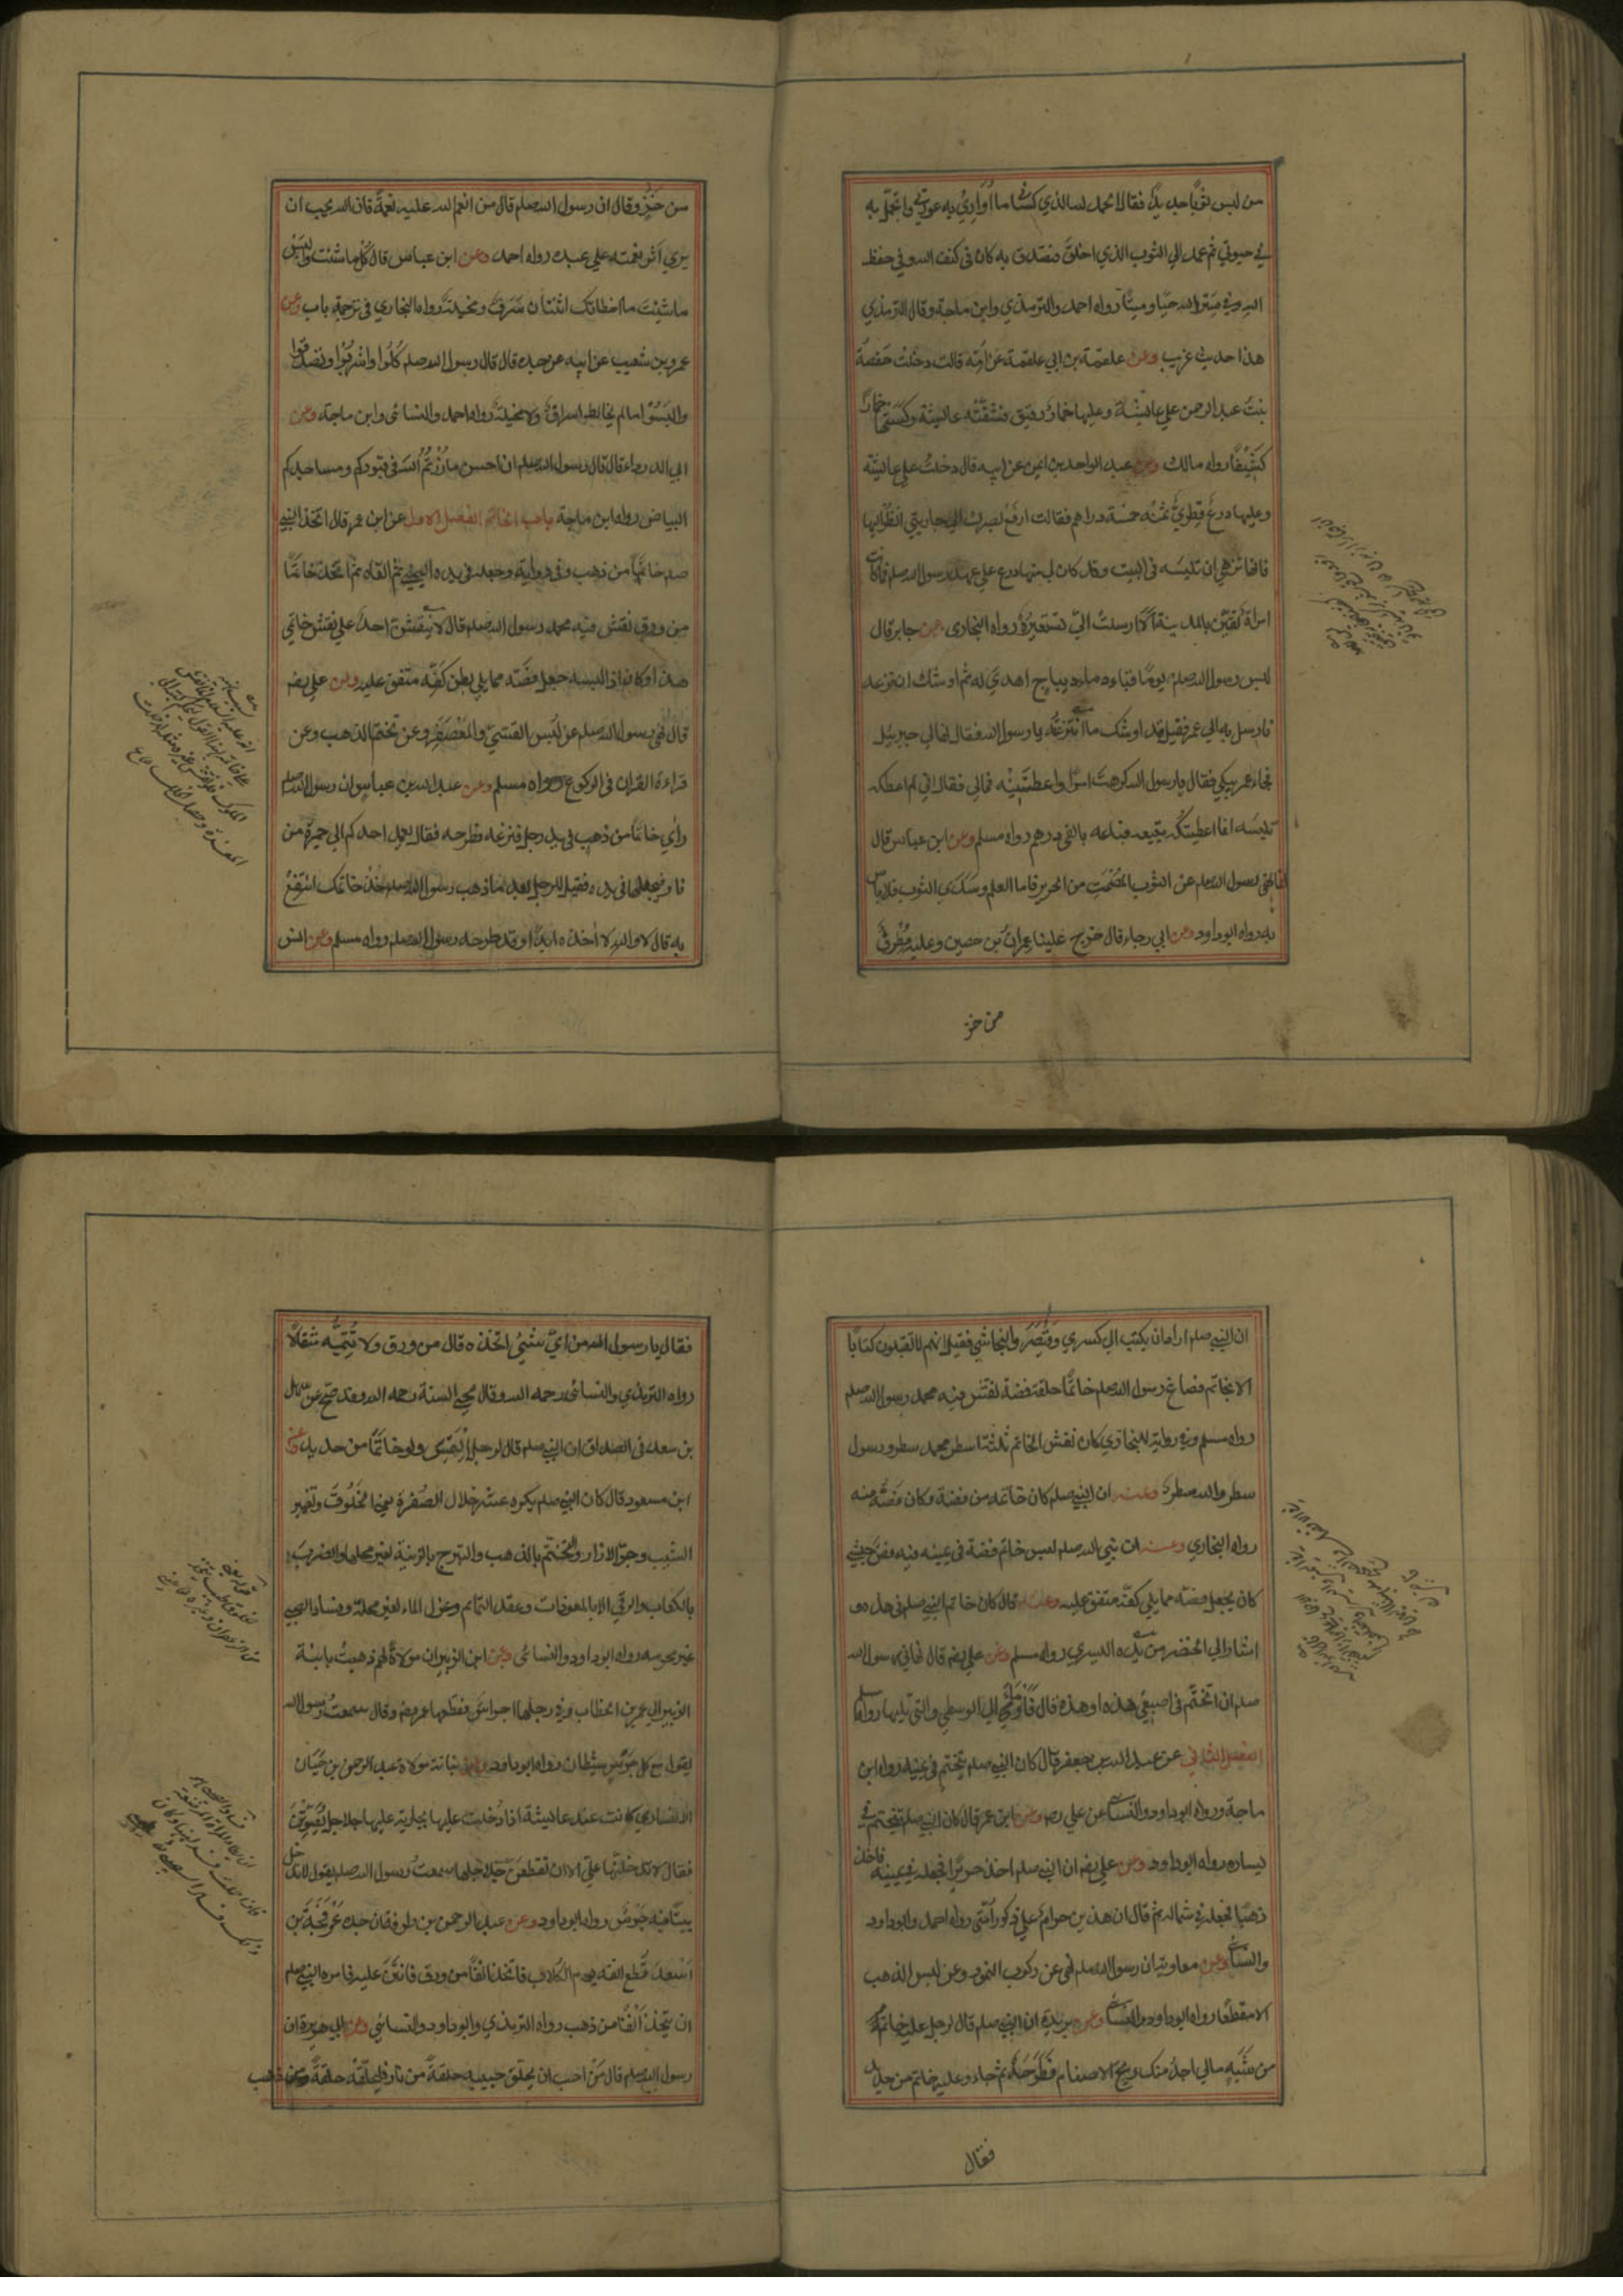 من لبس ثوبا جديدا فقال الحمد لله الذي كساني ما اُوَارِيْ به عورتي واتجمّل به
في حيوتي ثم عمد الي الثوب الذي اخلق فتصدق به كان في كنف الله وفي حفظ
الله وفي سِتْرِ الله حيّا وميتًا رواه احمد والترمذي وابن ماجة وقال الترمذي
هذا حديث غريب وعن علقمة بن ابي علقمة عن اُمّه قالت دخلتْ حفصةُ
بنتُ عبد الرحمن علي عائشة وعليها خمارٌ رقيق فشقّتْه عائشة وكَسَتْها خمارًا
كثيفًا رواه مالك وعن عبد الواحد بن ايمن عن ابيه قال دخلتُ علي عائشة
وعليها درعٌ قِطْرِيٌّ ثمنُه خمسة دراهم فقالت ارفَعْ بصرك الي جاريتي انظُرْ اليها
فانها تزهي ان تلبسَه في البيت وقد كان لي منها درع علي عهد رسول الله صلم فما كانت
امراة تُقَيَّنُ بالمدينة الّا ارسلتْ اليّ تستعيرُه رواه البخاري وعن جابر قال
لبس رسول الله صلم يومًا قباء ديباج اهدي له ثم اوشك ان نزعه
فارسل به الي عمر فقيل قد اوشك ما انتزعتَه يا رسول الله فقال نهاني جبرئيل
فجاء عمر يبكي فقال يا رسول الله كرهتَ امرًا واعطيتَنِيْه فمالي فقال اني لم اعطكه
تلبسه انما اعطيتكه تبيعه فباعه بالفي درهم رواه مسلم وعن ابن عباس قال
انما نهي رسول الله صلم عن الثوب المُصْمَتِ من الحرير فاما العلم وسَدَي الثوب فلا باس
به رواه ابو داود وعن ابي رجاء قال خرج علينا عمران بن حصين وعليه مُطْرَفٌ
من خز
من خَزٍّ وقال ان رسول الله صلم قال من انعم الله عليه نعمةً فان الله يحب ان
يري اَثَر نعمته علي عبده رواه احمد وعن ابن عباس قال كُلْ ما شئت والبَسْ
ما شِئتَ ما اخطاتك اثنتان سَرَفٌ ومخيلةٌ رواه البخاري في ترجمة باب وعن
عمرو بن شعيب عن ابيه عن جده قال قال رسول الله صلم كُلُوا واشربُوْا وتصدقوا
والبَسُوْا ما لم يخالط اسراف ولا مخيلةٌ رواه احمد والنسائي وابن ماجة وعن
ابي الدرداء قال قال رسول الله صلم ان احسن ما زُرْتُمُ اللهَ في قبوركم ومساجدكم
البياض رواه ابن ماجة باب الخاتم الفصل الاول عن ابن عمر قال اتخذ النبي
صلم خاتمًا من ذهب وفي رواية وجعله في يده اليمني ثم القاه ثم اتخذ خاتمًا
من ورق نقش فيه محمد رسول الله صلم قال لا ينقشنّ احدٌ علي نقش خاتمي
هذا وكان اذا لبسه جعل فصّه مما يلي بطن كفّه متفق عليه وعن علي رضه
قال نهي رسول الله صلم عن لُبْس القسّيّ والمُعَصْفَرِ وعن تختم الذهب وعن
قراءة القران في الركوع رواه مسلم وعن عبد الله بن عباس ان رسول الله صلم
رأي خاتمًا من ذهب في يد رجل فنزعه فطرحه فقال يعمد احدكم الي جمرة من
نار فيجعلها في يده فقيل للرجل بعد ما ذهب رسول الله صلم خُذْ خاتمك انتَفِعْ
به قال لا والله لا اٰخذه ابدًا وقد طرحه رسول الله صلم رواه مسلم وعن انس
ان النبي صلم اراد ان يكتب الي كسري وقَيْصَرَ والنجاشي فقيل انهم لا يقبلون كتابًا
الا بخاتم فصاغ رسول الله صلم خاتمًا حلقة فضة نقش فيه محمد رسول الله صلم
رواه مسلم وفي رواية للبخاري كان نقش الخاتم ثلثة اسطر محمد سطر ورسول
سطر والله سطر وعنه ان النبي صلم كان خاتمه من فضة وكان فصّه منه
رواه البخاري وعنه ان نبي الله صلم لبس خاتم فضة في يمينه فيه فصّ حبشي
كان يجعل فصّه مما يلي كفّه متفق عليه وعنه قال كان خاتم النبي صلم في هذه و
اشار الي الخنصر من يده اليسري رواه مسلم وعن علي رضه قال نهاني رسول الله
صلم ان اتختّم في اصبعي هذه او هذه قال فَاَوْمَأ الي الوسطي والتي تليها رواه
الفصل الثاني عن عبد الله بن جعفر قال كان النبي صلم يتختم في يمينه رواه ابن
ماجة ورواه ابو داود والنسائي عن علي رضه وعن ابن عمر قال كان النبي صلم يتختم في
يساره رواه ابو داود وعن علي رضه ان النبي صلم اخذ حريرًا فجعله في يمينه فاخذ
ذهبًا فجعله في شماله ثم قال ان هذين حرام علي ذكور اُمّتي رواه احمد وابو داود
والنسائي وعن معاوية ان رسول الله صلم نهي عن ركوب النمور وعن لبس الذهب
الا مقطعًا رواه ابو داود والنسائي وعن بريدة ان النبي صلم قال لرجل عليه خاتم
من شَبَهٍ مالي اجد منك ريح الاصنام فَطَرَحَه ثم جاء وعليه خاتم من حديد
فقال
فقال يا رسول الله من ايّ شيْئ اتخذه قال من ورق ولا تُتِمَّه مثقالًا
رواه الترمذي والنسائي رحمه الله وقال محيي السنة رحمه الله وقد صحّ عن سهل
بن سعد في الصداق ان النبي صلم قال لرجل اِلْتَمِسْ ولو خاتمًا من حديد وعن
ابن مسعود قال كان النبي صلم يكره عشر خلال الصُفْرَة يعني الخَلُوْقَ وتغيير
الشيب وجرّ الازار والتختُّم بالذهب والتبرج بالزينة لغير محلها والضرب
بالكعاب والرقي الا بالمعوذات وعقد التمائم وعزل الماء لغير محله وفساد الصبي
غير محرمه رواه ابو داود والنسائي وعن ابن الزبير ان مولاةً لهم ذهبتْ بابنة
الزبير الي عمر بن الخطاب وفي رجلها اجراسٌ فقطعها عمر رضه وقال سمعتُ رسول الله
يقول مع كل جرسٍ شيطان رواه ابو داود وعن بنانة مولاة عبد الرحمن بن حَيّان
الانصاري كانت عند عائشة اذ دُخلت عليها بجارية عليها جلاجل يُصَوِّتْنَ
فقال لا تدخلنّها عليّ الا ان تقطعنّ جلاجلها سمعتُ رسول الله صلم يقول لا تدخل
بيتًا فيه جرسٌ رواه ابو داود وعن عبد الرحمن بن طرفة ان جده عَرْفَجَةَ بن
اَسْعَدَ قُطع انفه يوم الكلاب فاتخذ انفًا من ورق فانتن عليه فامره النبي صلم
ان يتخذ اَنْفًا من ذهب رواه الترمذي وابو داود والنسائي وعن ابي هريرة ان
رسول الله صلم قال مَنْ احب ان يحلّق حبيبه حلقةً من نار فليحلّقْه حلقةً من ذهب